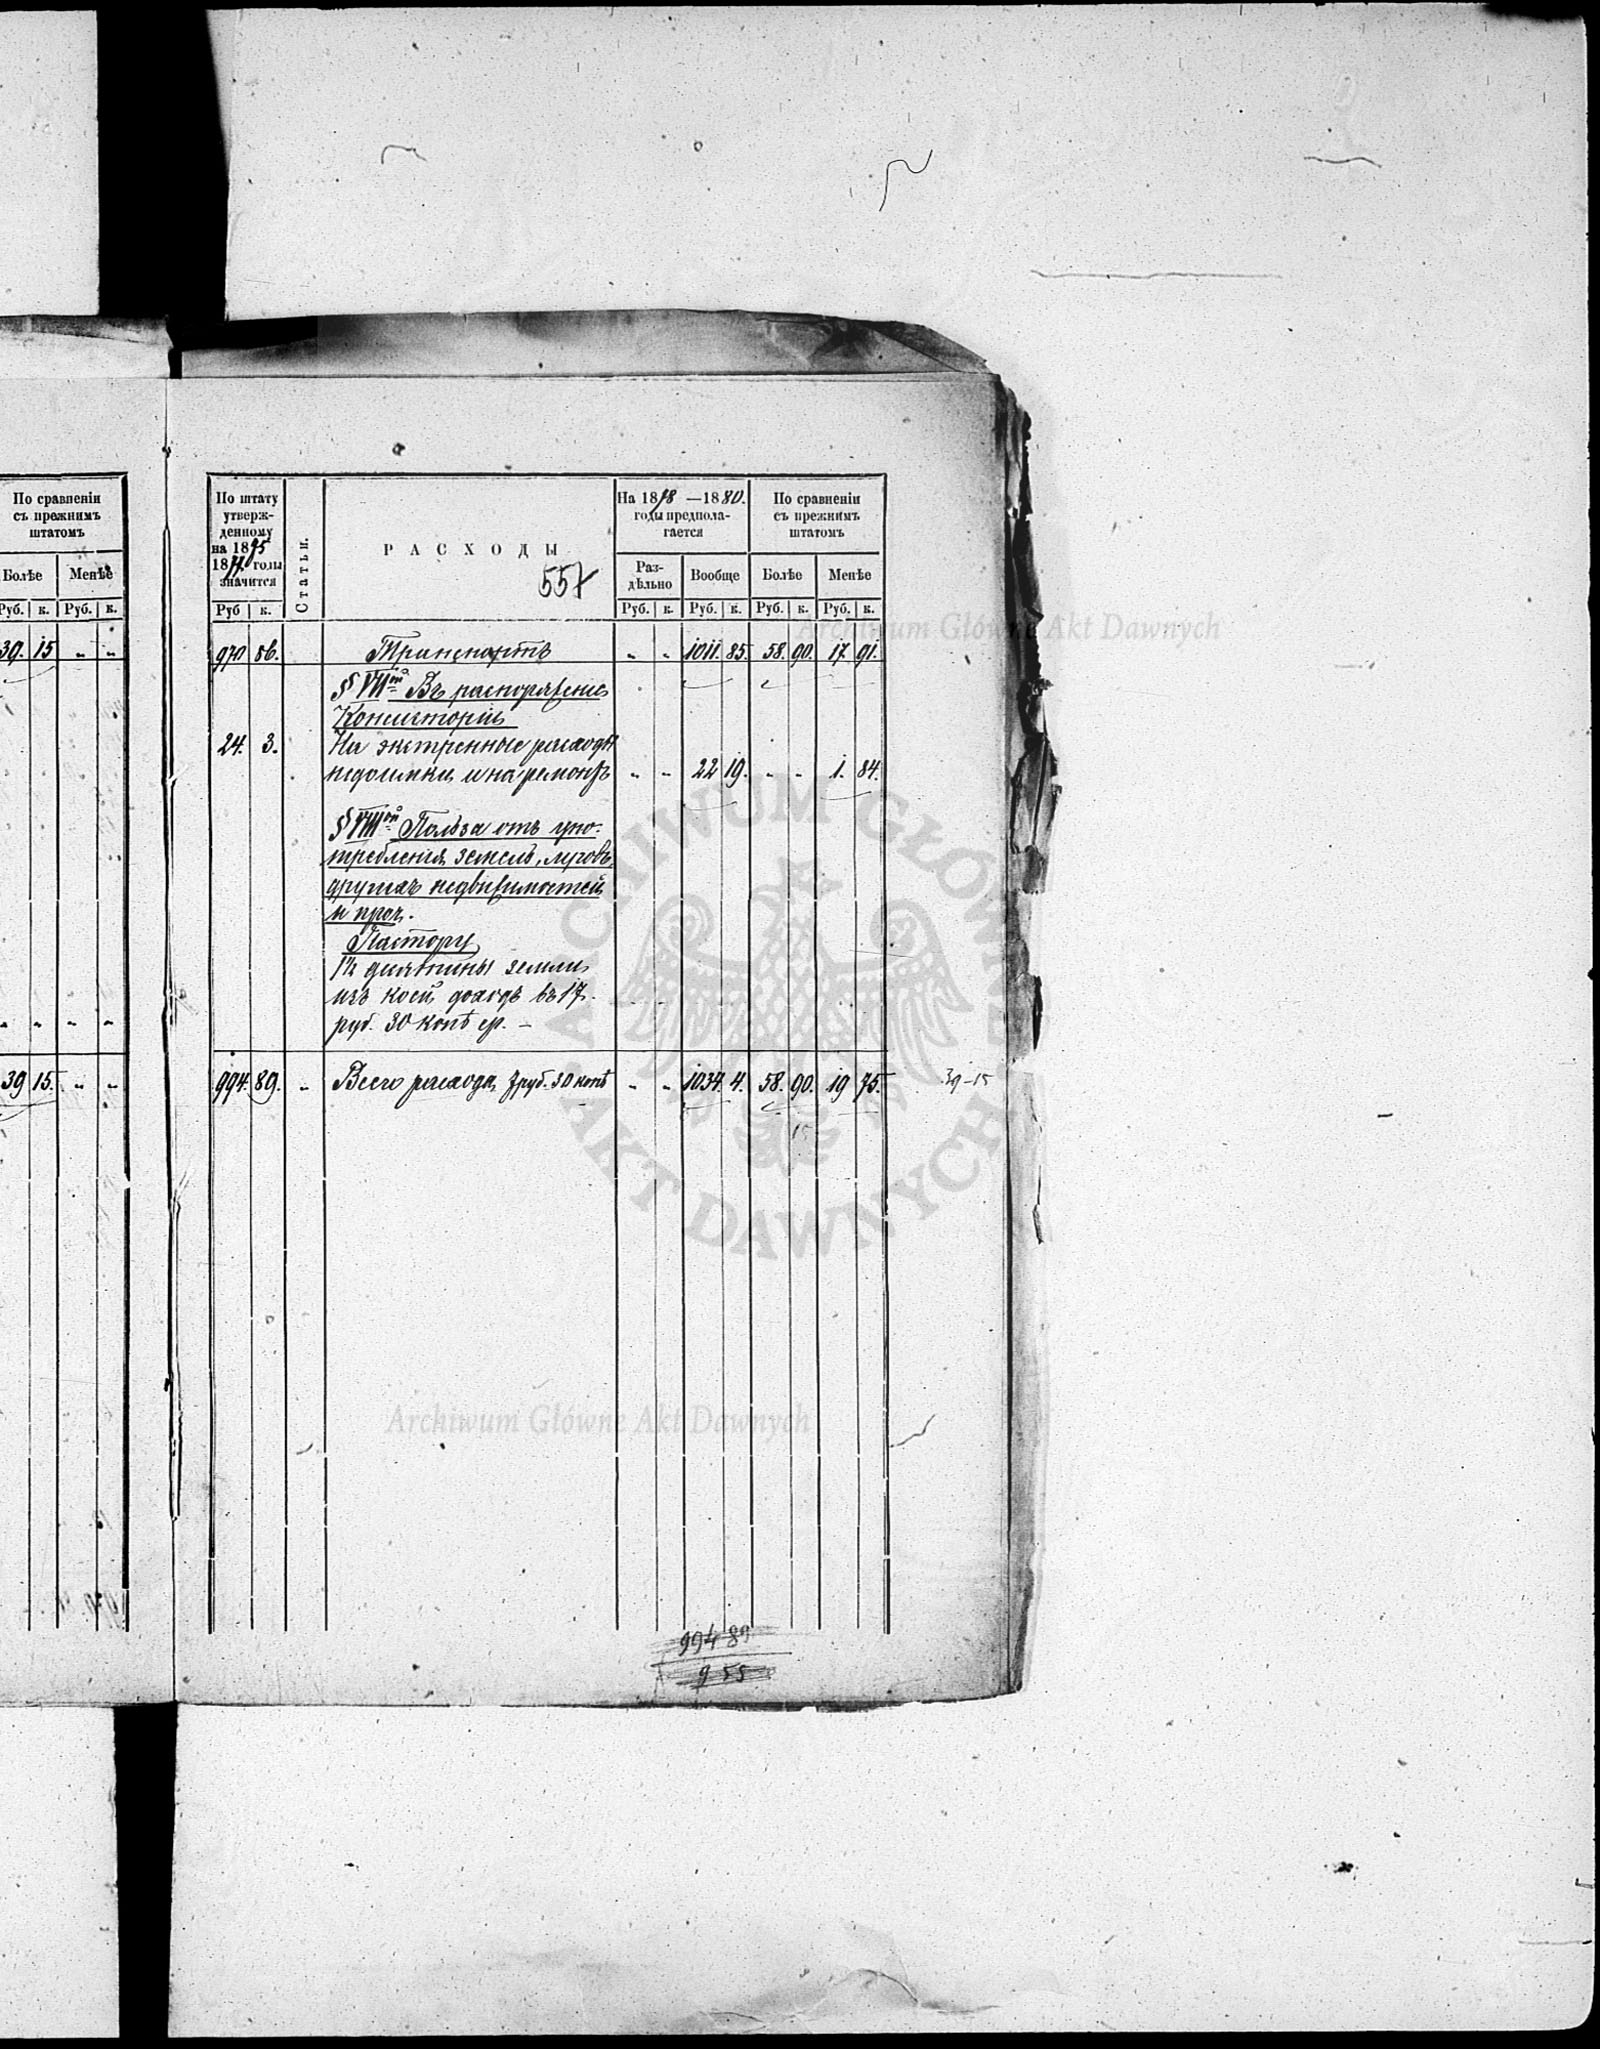 По сравненіи
съ прежнимъ
штатомъ
Болѣе Менѣе
Руб. к. Руб. к.
39. 15 „ „
„ „ „ „
39 15. „ „
По штату
утверж-
денному
на 1875
1877 годы
значится
Руб к.
Статьи.
РАСХОДЫ
557
На 1878 —1880.
годы предпола-
гается
Раз-
дѣльно
Вообще
Руб. к. Руб. к.
По сравненіи
съ прежнимъ
штатомъ
Болѣе Менѣе
Руб. к. Руб. к.
970 86. Транспортъ „ „ 1011. 85. 58. 90. 17. 91.
§ VII Въ распоряженіе
Консисторіи
24. 3. На экстренные расходы
недоимки и на ремонтъ „ „ 22 19. „ „ 1. 84.
§ VIII Польза отъ упо-
требленія земель, луговъ,
другихъ недвижимостей
и проч.
Пастору
десятины земли
изъ коей доходъ въ 17.
руб. 30 коп. ср. —
994. 89. „ Всего расхода 7 руб. 30 коп. „ „ 1034. 4. 58. 90. 19 75.
39-15
15
994 89
9 55
Archiwum Główne Akt Dawnych
ARCHIWUM GŁÓWNE
AKT DAWNYCH
Archiwum Główne Akt Dawnych